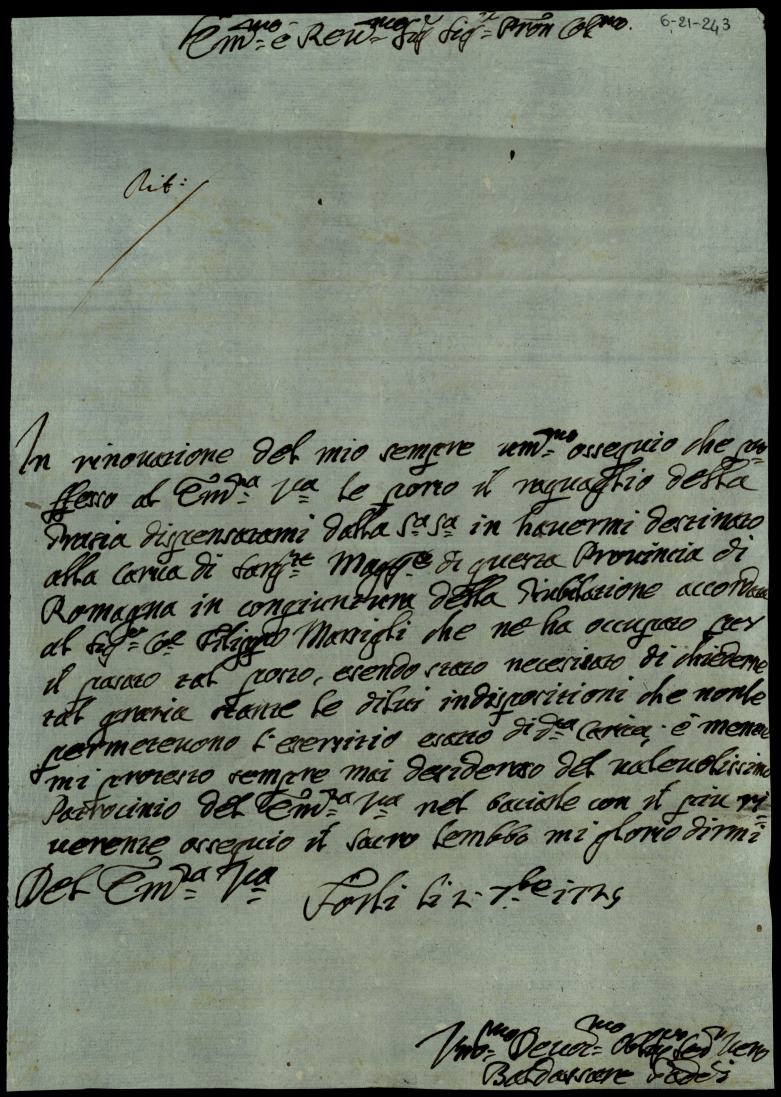 6-21-243
Em.mo e Rev.mo Sig.r Sig.r Pron Col.mo
Rit:
In rinouatione del mio sempre um.mo ossequio che pro
ffesso al Em.za V.a le porto il raguaglio della
Gratia dispensatami dalla S.a S.a in hauermi destinato
alla carica di Sarg.te Magg.e di questa Provincia di
Romagna in congiuntura della Giubilatione accordata
al Sig.r Co.e Filippo Marsigli che ne ha occupato per
il pasato tal posto, esendo stato necesitato di chiederne
tal gratia stante le dilui indispositioni che nonle
permeteuono l'esercitio esatto di d.ta Carica; e mentre
mi protesto sempre mai desideroso del ualeuolissimo
Patrocinio del Em.za V.a nel baciale con il piu ri
uerente ossequio il sacro lembbo mi glorio dirmi
Del Em.za V.a Forlì li 2. 7.bre 1725
Um.mo Deuot.mo Obblig. Ser. Uero
Baldassare